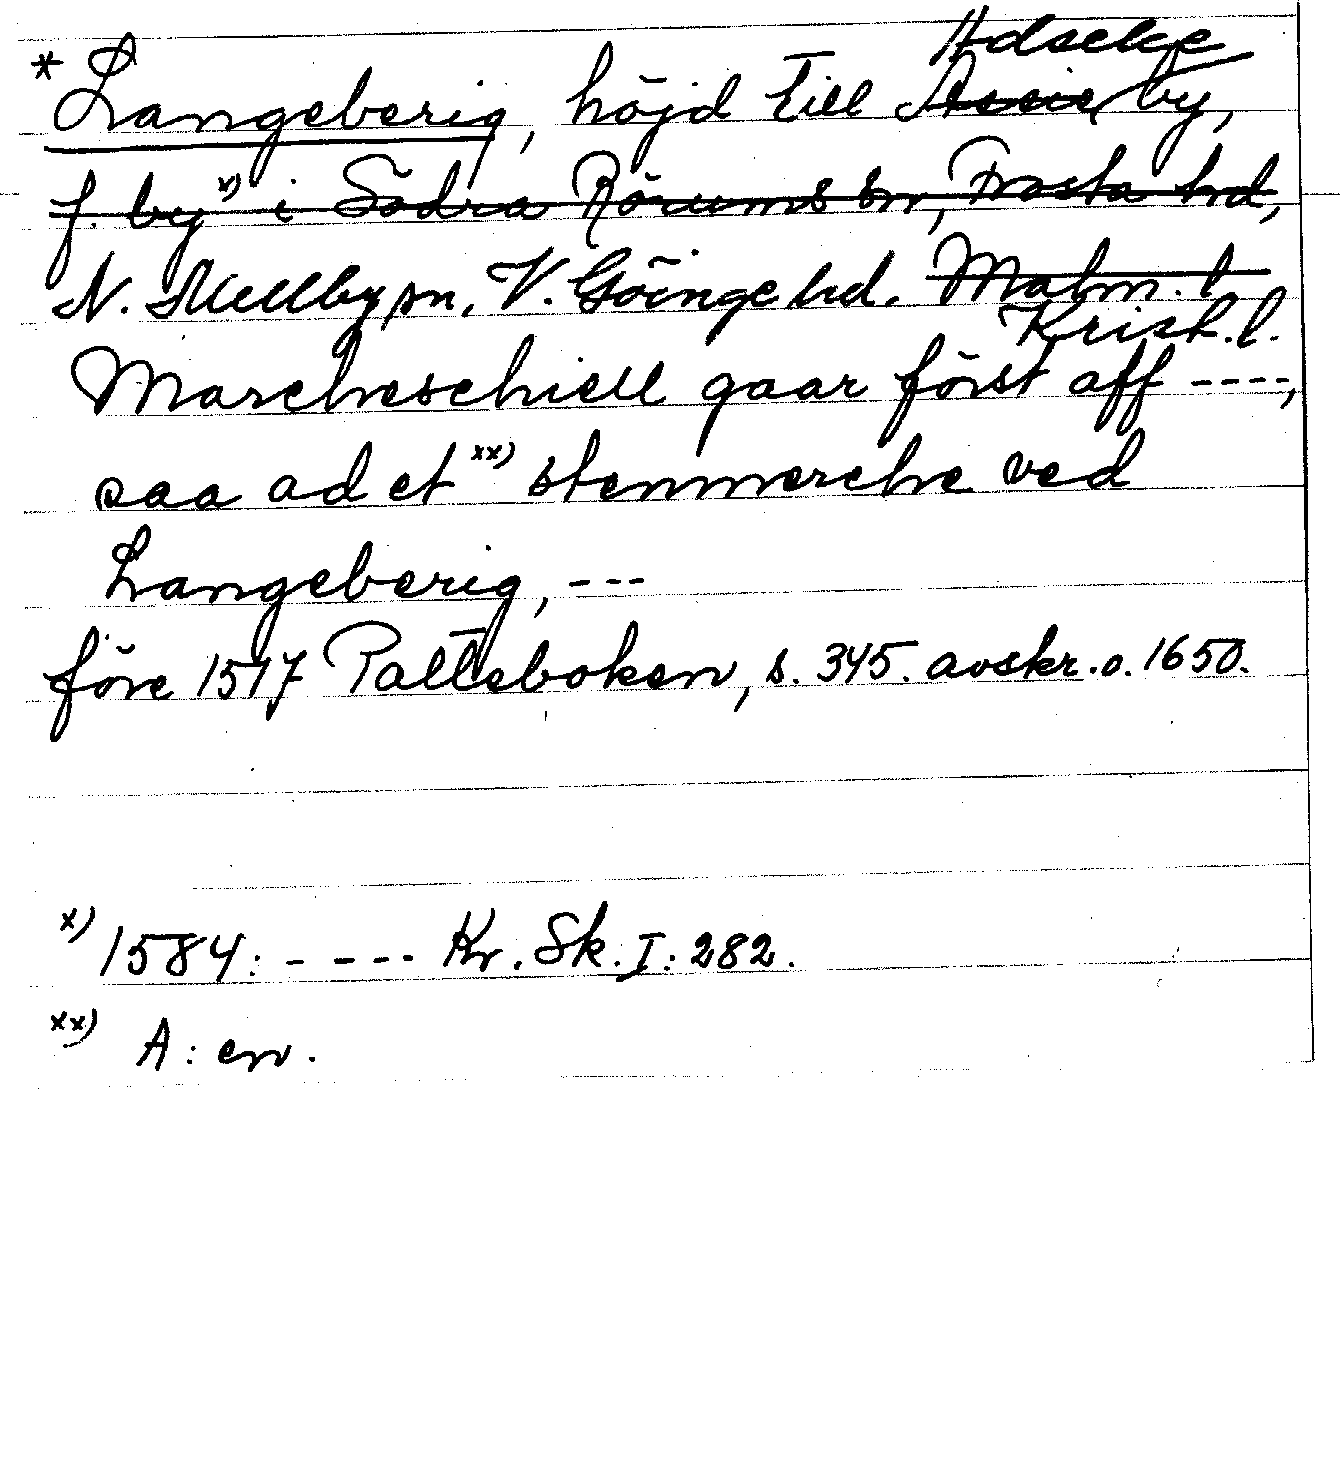 Adseke
* Langeberig, höjd till Aseie by,
f. by x) i Södra Rörums sn, Frosta hd,
N. Mellby sn, V. Göinge hd. Malm. l
Krist. l.
Marcheschiell gaar först aff ----,
saa ad et xx) stenmerche ved
Langeberig, ---
före 1517 Palteboken, s. 345. avskr. o. 1650.
x) 1584: ---- Kr. Sk. I: 282.
xx) A: en.